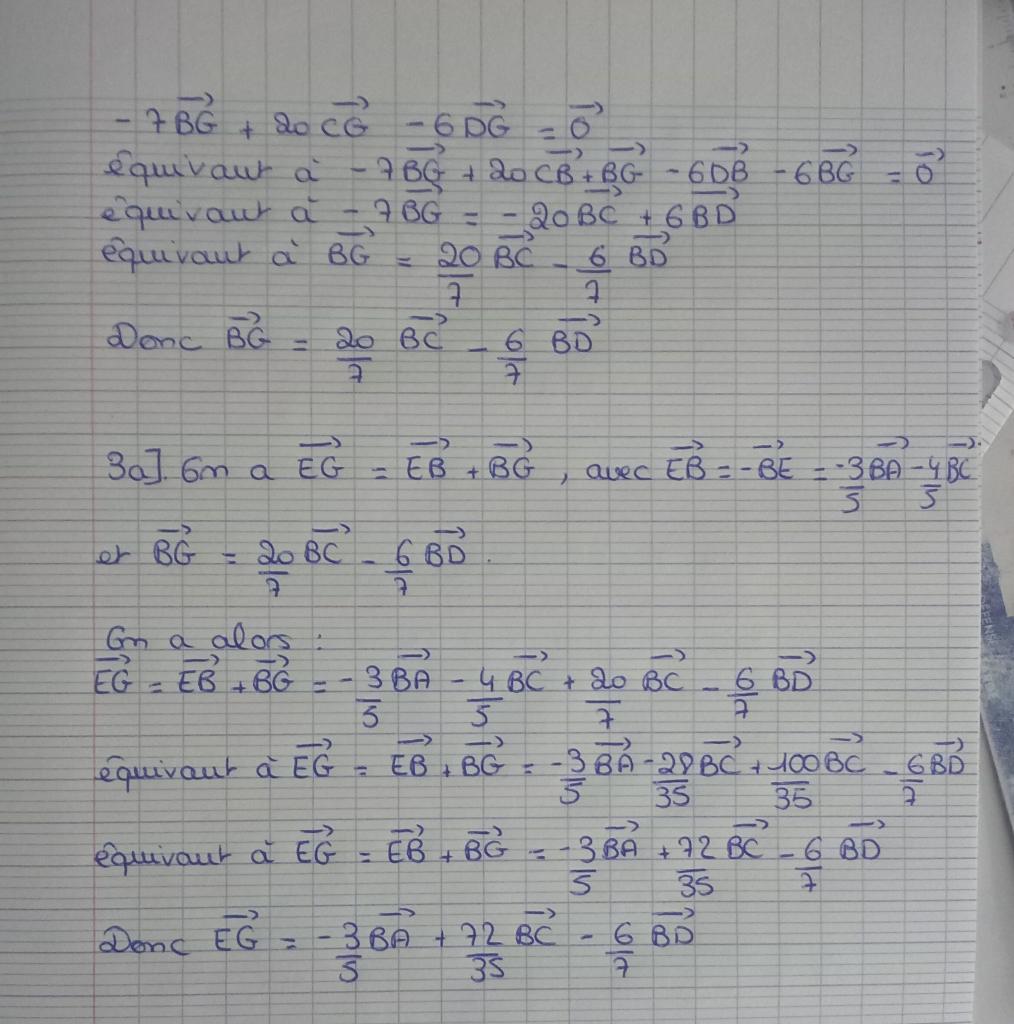 -7BG⃗ + 20CG⃗ - 6DG⃗ = 0⃗
équivaut à -7BG⃗ + 20CB⃗ + BG⃗ - 6DB⃗ - 6BG⃗ = 0⃗
équivaut à -7BG⃗ = -20BC⃗ + 6BD⃗
équivaut à BG⃗ = 20/7 BC⃗ - 6/7 BD⃗
Donc BG⃗ = 20/7 BC⃗ - 6/7 BD⃗
3a]. On a EG⃗ = EB⃗ + BG⃗, avec EB⃗ = -BE⃗ = -3/5 BA⃗ - 4/5 BC⃗
et BG⃗ = 20/7 BC⃗ - 6/7 BD⃗.
On a alors :
EG⃗ = EB⃗ + BG⃗ = -3/5 BA⃗ - 4/5 BC⃗ + 20/7 BC⃗ - 6/7 BD⃗
équivaut à EG⃗ = EB⃗ + BG⃗ = -3/5 BA⃗ - 28/35 BC⃗ + 100/35 BC⃗ - 6/7 BD⃗
équivaut à EG⃗ = EB⃗ + BG⃗ = -3/5 BA⃗ + 72/35 BC⃗ - 6/7 BD⃗
Donc EG⃗ = -3/5 BA⃗ + 72/35 BC⃗ - 6/7 BD⃗